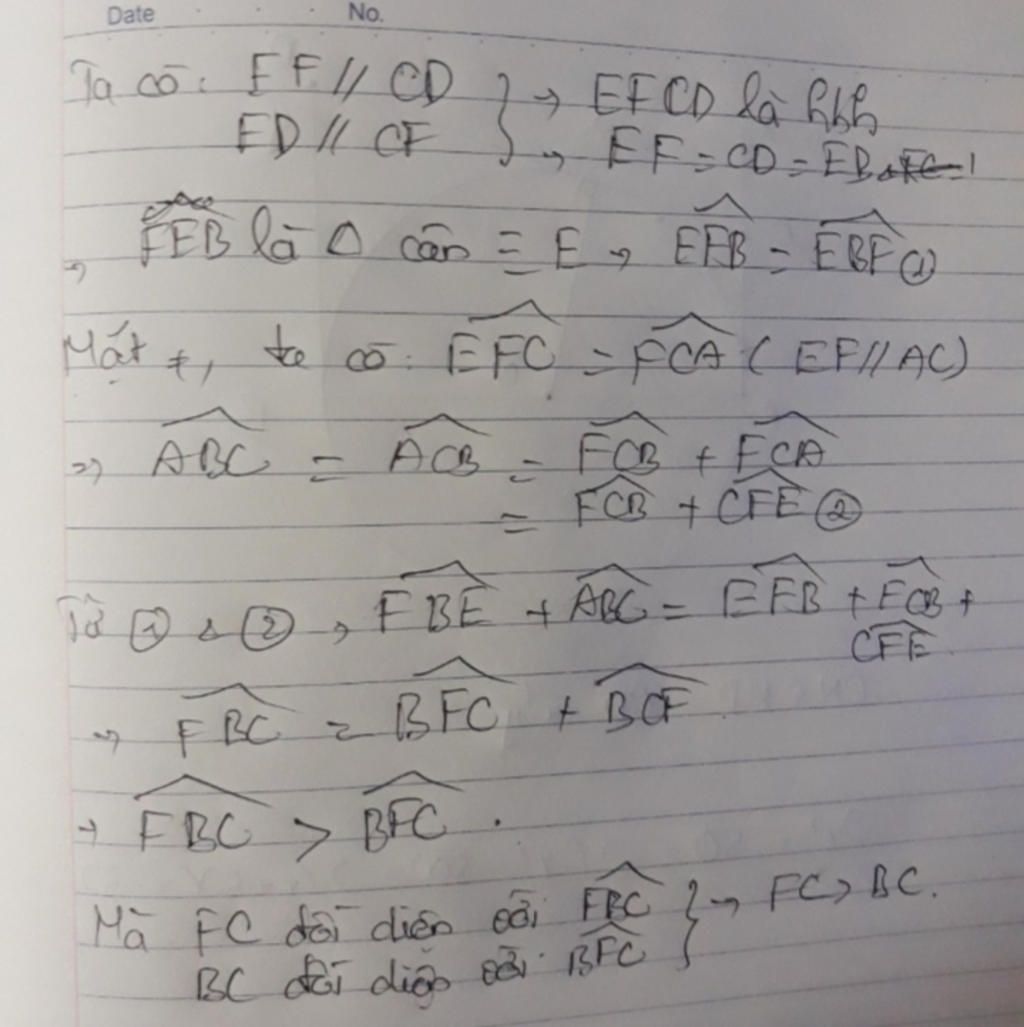 Date No.
Ta có: EF // CD } → EFCD là hbh
ED // CF → EF = CD = EB
→ FEB là Δ cân = E → EFB = EBF ①
Mặt ≠, ta có: EFC = FCA ( EF // AC)
=> ABC = ACB = FCB + FCA
= FCB + CFE ②
Từ ① & ② → FBE + ABC = EFB + FCB +
CFE.
→ FBC = BFC + BCF.
→ FBC > BFC.
Mà FC đối diện với FBC } → FC > BC.
BC đối diện với BFC